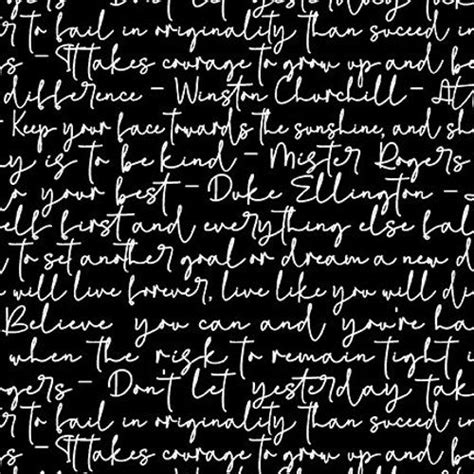 Don't let yesterday
to fail in originality than suceed in
s - Takes courage to grow up and be
difference - Winston Churchill - At
Keep your face towards the sunshine, and sh
y is to be kind - Mister Rogers
o your best - Duke Ellington -
elf first and everything else fal
to set another goal or dream a new d
will live forever, live like you will di
Believe you can and you're ha
when the risk to remain tight i
gers - Don't let yesterday tak
r to fail in originality than suceed in
s - Takes courage to grow up and be